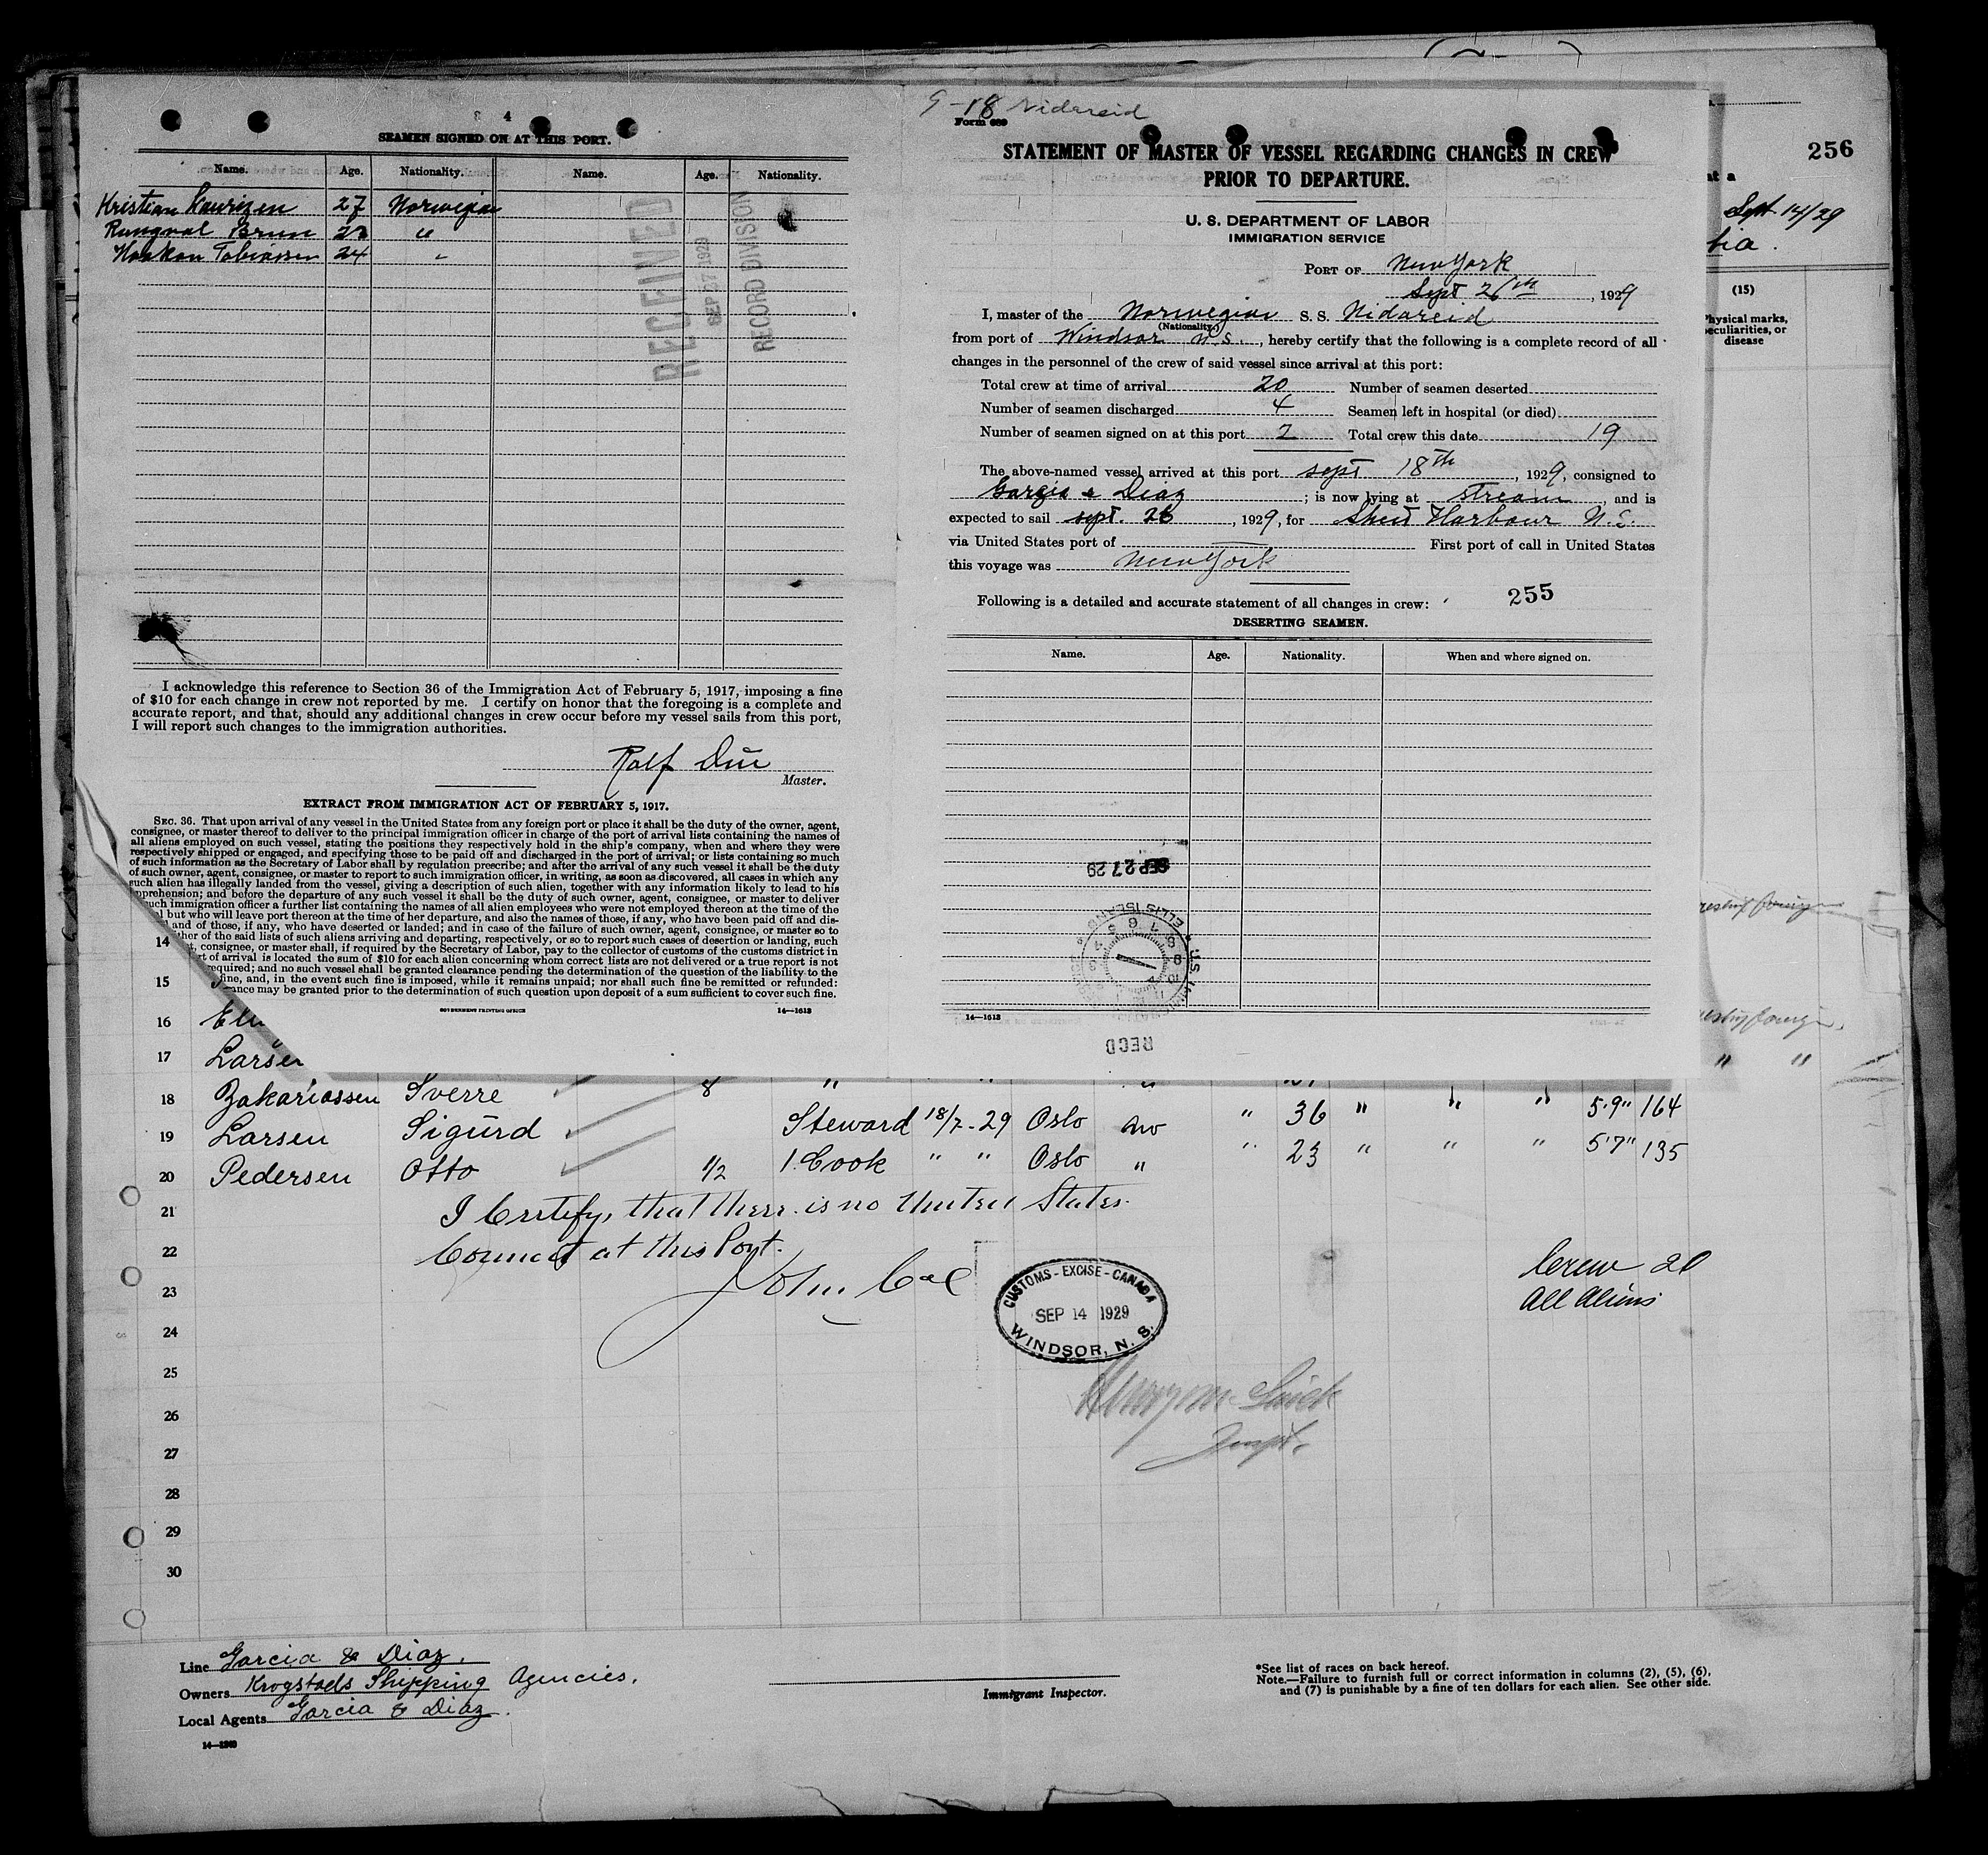 4
SEAMEN SIGNED ON AT THIS PORT.
Name. Age. Nationality. Name. Age. Nationality.
Kristian Laurizen 27 Norwegian
Rungval Brun 23 "
Haakon Tobiassen 24 "
RECEIVED
SEP 27 1929
RECORD DIVISION
I acknowledge this reference to Section 36 of the Immigration Act of February 5, 1917, imposing a fine
of $10 for each change in crew not reported by me. I certify on honor that the foregoing is a complete and
accurate report, and that, should any additional changes in crew occur before my vessel sails from this port,
I will report such changes to the immigration authorities.
Rolf Due
Master.
EXTRACT FROM IMMIGRATION ACT OF FEBRUARY 5, 1917.
SEC. 36. That upon arrival of any vessel in the United States from any foreign port or place it shall be the duty of the owner, agent,
consignee, or master thereof to deliver to the principal immigration officer in charge of the port of arrival lists containing the names of
all aliens employed on such vessel, stating the positions they respectively hold in the ship's company, when and where they were
respectively shipped or engaged, and specifying those to be paid off and discharged in the port of arrival; or lists containing so much
of such information as the Secretary of Labor shall by regulation prescribe; and after the arrival of any such vessel it shall be the duty
of such owner, agent, consignee, or master to report to such immigration officer, in writing, as soon as discovered, all cases in which any
such alien has illegally landed from the vessel, giving a description of such alien, together with any information likely to lead to his
apprehension; and before the departure of any such vessel it shall be the duty of such owner, agent, consignee, or master to deliver
such immigration officer a further list containing the names of all alien employees who were not employed thereon at the time of the
but who will leave port thereon at the time of her departure, and also the names of those, if any, who have been paid off and dis-
and of those, if any, who have deserted or landed; and in case of the failure of such owner, agent, consignee, or master so to
ther of the said lists of such aliens arriving and departing, respectively, or so to report such cases of desertion or landing, such
consignee, or master shall, if required by the Secretary of Labor, pay to the collector of customs of the customs district in
rt of arrival is located the sum of $10 for each alien concerning whom correct lists are not delivered or a true report is not
required; and no such vessel shall be granted clearance pending the determination of the question of the liability to the
fine, and, in the event such fine is imposed, while it remains unpaid; nor shall such fine be remitted or refunded:
ance may be granted prior to the determination of such question upon deposit of a sum sufficient to cover such fine.
GOVERNMENT PRINTING OFFICE 14—1613
9-18 Nidareid
Form 689
STATEMENT OF MASTER OF VESSEL REGARDING CHANGES IN CREW
PRIOR TO DEPARTURE.
U. S. DEPARTMENT OF LABOR
IMMIGRATION SERVICE
PORT OF New York
Sept 26th, 1929
I, master of the Norwegian S. S. Nidareid
(Nationality.)
from port of Windsor N.S., hereby certify that the following is a complete record of all
changes in the personnel of the crew of said vessel since arrival at this port:
Total crew at time of arrival 20 Number of seamen deserted
Number of seamen discharged 4 Seamen left in hospital (or died)
Number of seamen signed on at this port Total crew this date 19
The above-named vessel arrived at this port sept 18th, 1929, consigned to
Garzia & Diaz; is now lying at stream, and is
expected to sail sept. 26, 1929, for Sheet Harbour N.S.
via United States port of First port of call in United States
this voyage was New York
Following is a detailed and accurate statement of all changes in crew: 255
DESERTING SEAMEN.
Name. Age. Nationality. When and where signed on.
SEP 27 29
ELLIS ISLAND
14—1613
RECD
256
at a
Sept 14/29
tia.
(15)
Physical marks,
peculiarities, or
disease
14
15
16
17 Larsen
18 Zakariassen Sverre 8
19 Larsen Sigurd Steward 18/7-29 Oslo no " 36 " " " 5'9" 164
20 Pedersen Otto 1/2 1. Cook " " Oslo " " 23 " " " 5'7" 135
21 I Certify, that there is no United States
22 Counsel at this Port.
23 John Coe
24
25
26
27
28
29
30
CUSTOMS-EXCISE-CANADA
SEP 14 1929
WINDSOR, N. S.
Inspt.
Crew 20
All Aliens
Line Garcia & Diaz.
Owners Krogstads Shipping Agencies.
Local Agents Garcia & Diaz.
Immigrant Inspector.
*See list of races on back hereof.
Note.—Failure to furnish full or correct information in columns (2), (5), (6),
and (7) is punishable by a fine of ten dollars for each alien. See other side.